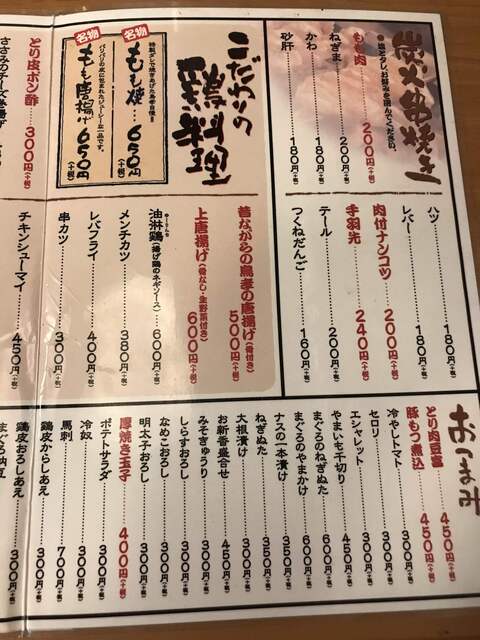 炭火串焼き
※塩とタレ、お好みを選んでください。
もも肉 200円(+税)
ねぎま 200円(+税)
かわ 180円(+税)
砂肝 180円(+税)
ハツ 180円(+税)
レバー 180円(+税)
肉付ナンコツ 200円(+税)
手羽先 240円(+税)
テール 200円(+税)
つくねだんご 160円(+税)
こだわりの
鶏料理
名物
特製ダレで焼きあげた鳥孝自慢の
もも焼… 650円(+税)
名物
パリパリの皮に包まれたジューシーな一品です。
もも唐揚げ 650円(+税)
とり皮ポン酢 300円(+税)
ささみのチーズ巻揚げ
昔ながらの鳥孝の唐揚げ(骨付き) 500円(+税)
上唐揚げ(骨なし・生野菜付き) 600円(+税)
油淋鶏(揚げ鶏のネギソース) 600円(+税)
メンチカツ 380円(+税)
レバフライ 400円(+税)
串カツ 300円(+税)
チキンシューマイ 450円(+税)
おつまみ
とり肉豆富 450円(+税)
豚もつ煮込 450円(+税)
冷やしトマト 300円(+税)
セロリ 300円(+税)
エシャレット 300円(+税)
やまいも千切り 450円(+税)
まぐろのねぎぬた 600円(+税)
まぐろのやまかけ 600円(+税)
ナスの一本漬け 350円(+税)
ねぎぬた 350円(+税)
大根漬け 300円(+税)
お新香盛合せ 450円(+税)
みそきゅうり 300円(+税)
しらすおろし 300円(+税)
なめこおろし 300円(+税)
明太子おろし 300円(+税)
厚焼き玉子 400円(+税)
ポテトサラダ 300円(+税)
冷奴 300円(+税)
馬刺 700円(+税)
鶏皮からしあえ 300円(+税)
鶏皮おろしあえ 300円(+税)
まぐろ納豆